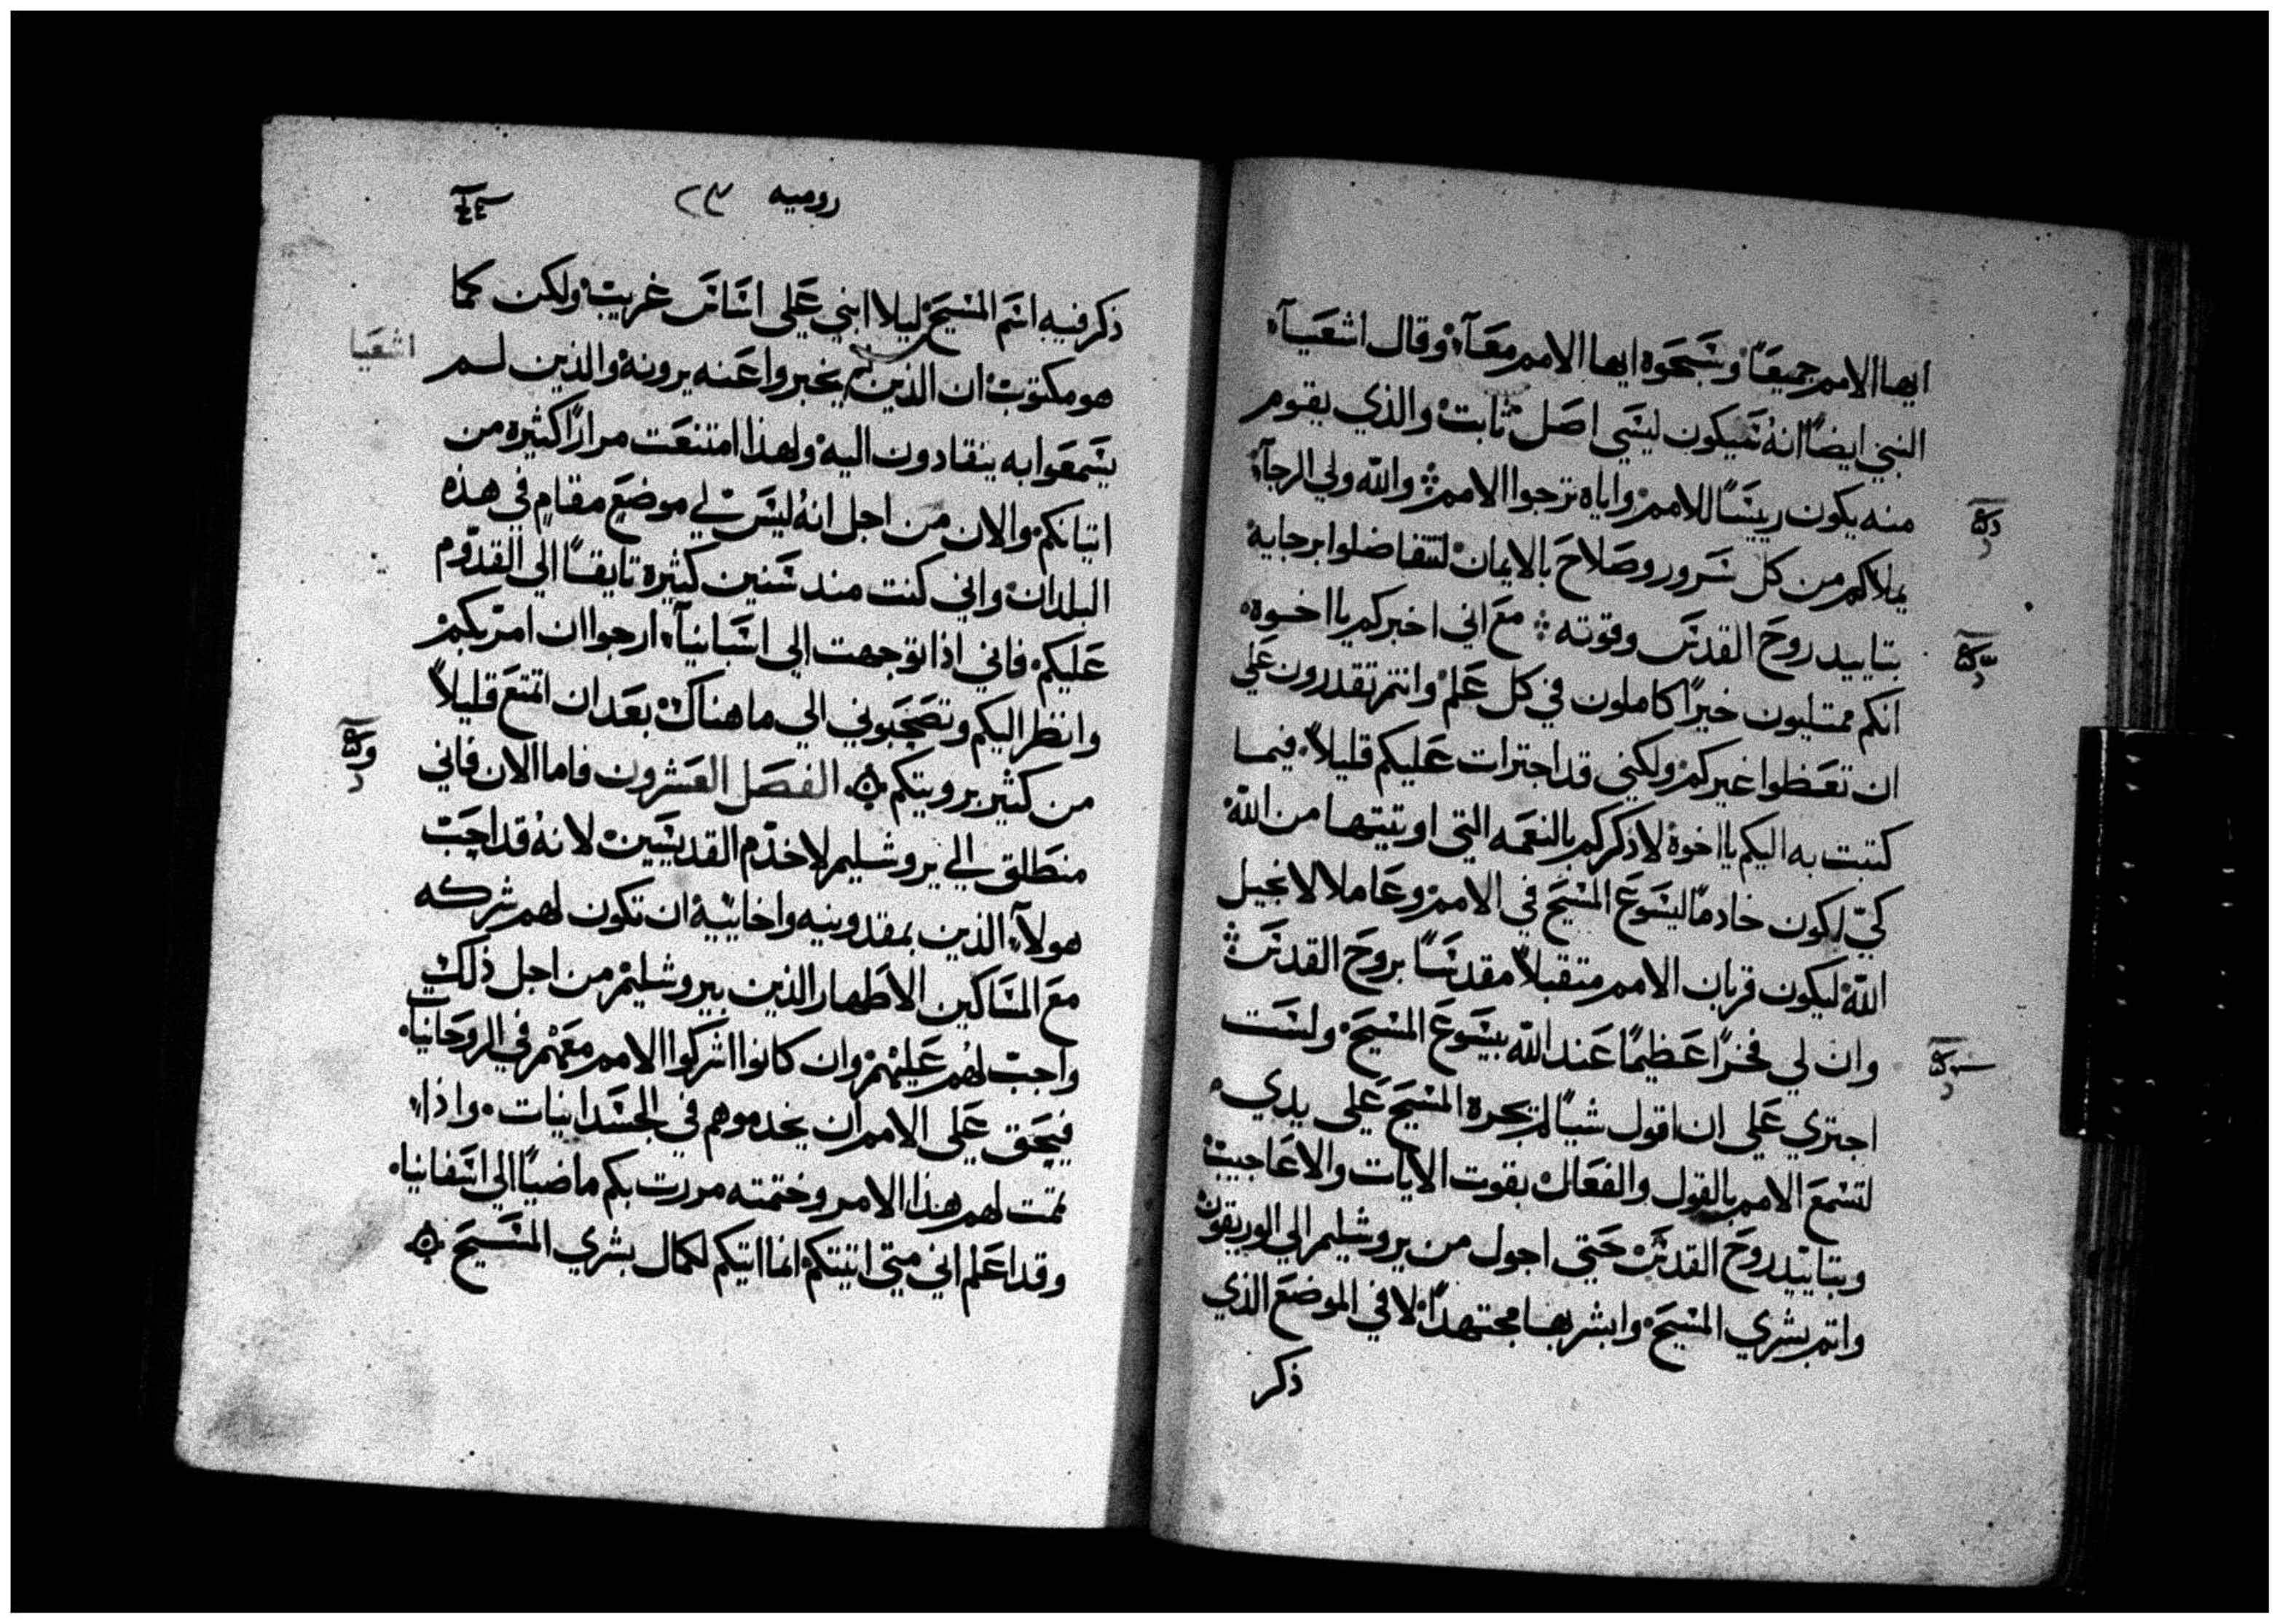 ايها الامم جميعًا وسبحوه ايها الامم معًا وقال اشعيا
النبي ايضًا انه سيكون ليسي اصل ثابت والذي يقوم
منه يكون رييسًا للامم واياه تترجوا الامم والله ولي الرجآ
يملاكم من كل سرور وصلاح بالايمان لتتفاضلوا برجايه
بتاييد روح القدس وقوته مع اني اخبركم يا اخوه
انكم ممتليون خيرًا كاملون في كل علم وانتم تقدرون علي
ان تعظوا غيركم ولكني قد اجترات عليكم قليلاً فيما
كتبت به اليكم يا اخوة لاذكركم بالنعمه التي اوتيتها من الله
كي لكون خادمًا ليسوع المسيح في الامم وعاملا لانجيل
الله ليكون قربان الامم متقبلاً مقدسًا بروح القدس
وان لي فخرًا عظيمًا عند الله بيسوع المسيح ولست
اجتري علي ان اقول شيًا لم يجره المسيح علي يدي
لتسمع الامم بالقول والفعال بقوت الايات والاعاجيب
وبتاييد روح القدس حتي اجول من يروشليم الي الوريقون
واتم بشري المسيح وابشر بها مجتهدًا لا في الموضع الذي
ذكر
روميه ٢٣
ذكر فيه اسم المسيح ليلا ابني علي اساس غريب ولكن كما
هو مكتوب ان الذين لم يخبروا عنه يرونه والذين لم
اشعيا
يسمعوا به ينقادون اليه ولهذا امتنعت مرارًا كثيره من
اتيانكم والان من اجل انه ليس لي موضع مقام في هذه
البلدان واني كنت منذ سنين كثيرة تايقًا الي القدوم
عليكم فاني اذا توجهت الي اسبانيآ ارجوا ان امر بكم
وانظر اليكم وتصحبوني الي ما هناك بعد ان اتمتع قليلاً
من كثير برويتكم الفصل العشرون فاما الان فاني
منطلق الي يروشليم لاخدم القديسين لانه قد احب
هولآء الذين بمقدونيه واخاييه ان تكون لهم شركه
مع المساكين الاطهار الذين بيروشليم من اجل ذلك
واجب لهم عليهم وان كانوا اشركوا الامم معهم في الروحانيات
فيحق علي الامم ان يخدموهم في الجسدانيات واذا
تممت لهم هذا الامر وختمته مررت بكم ماضيًا الي اسفانيا
وقد اعلم اني متي اتيتكم انما اتيكم لكمال بشري المسيح